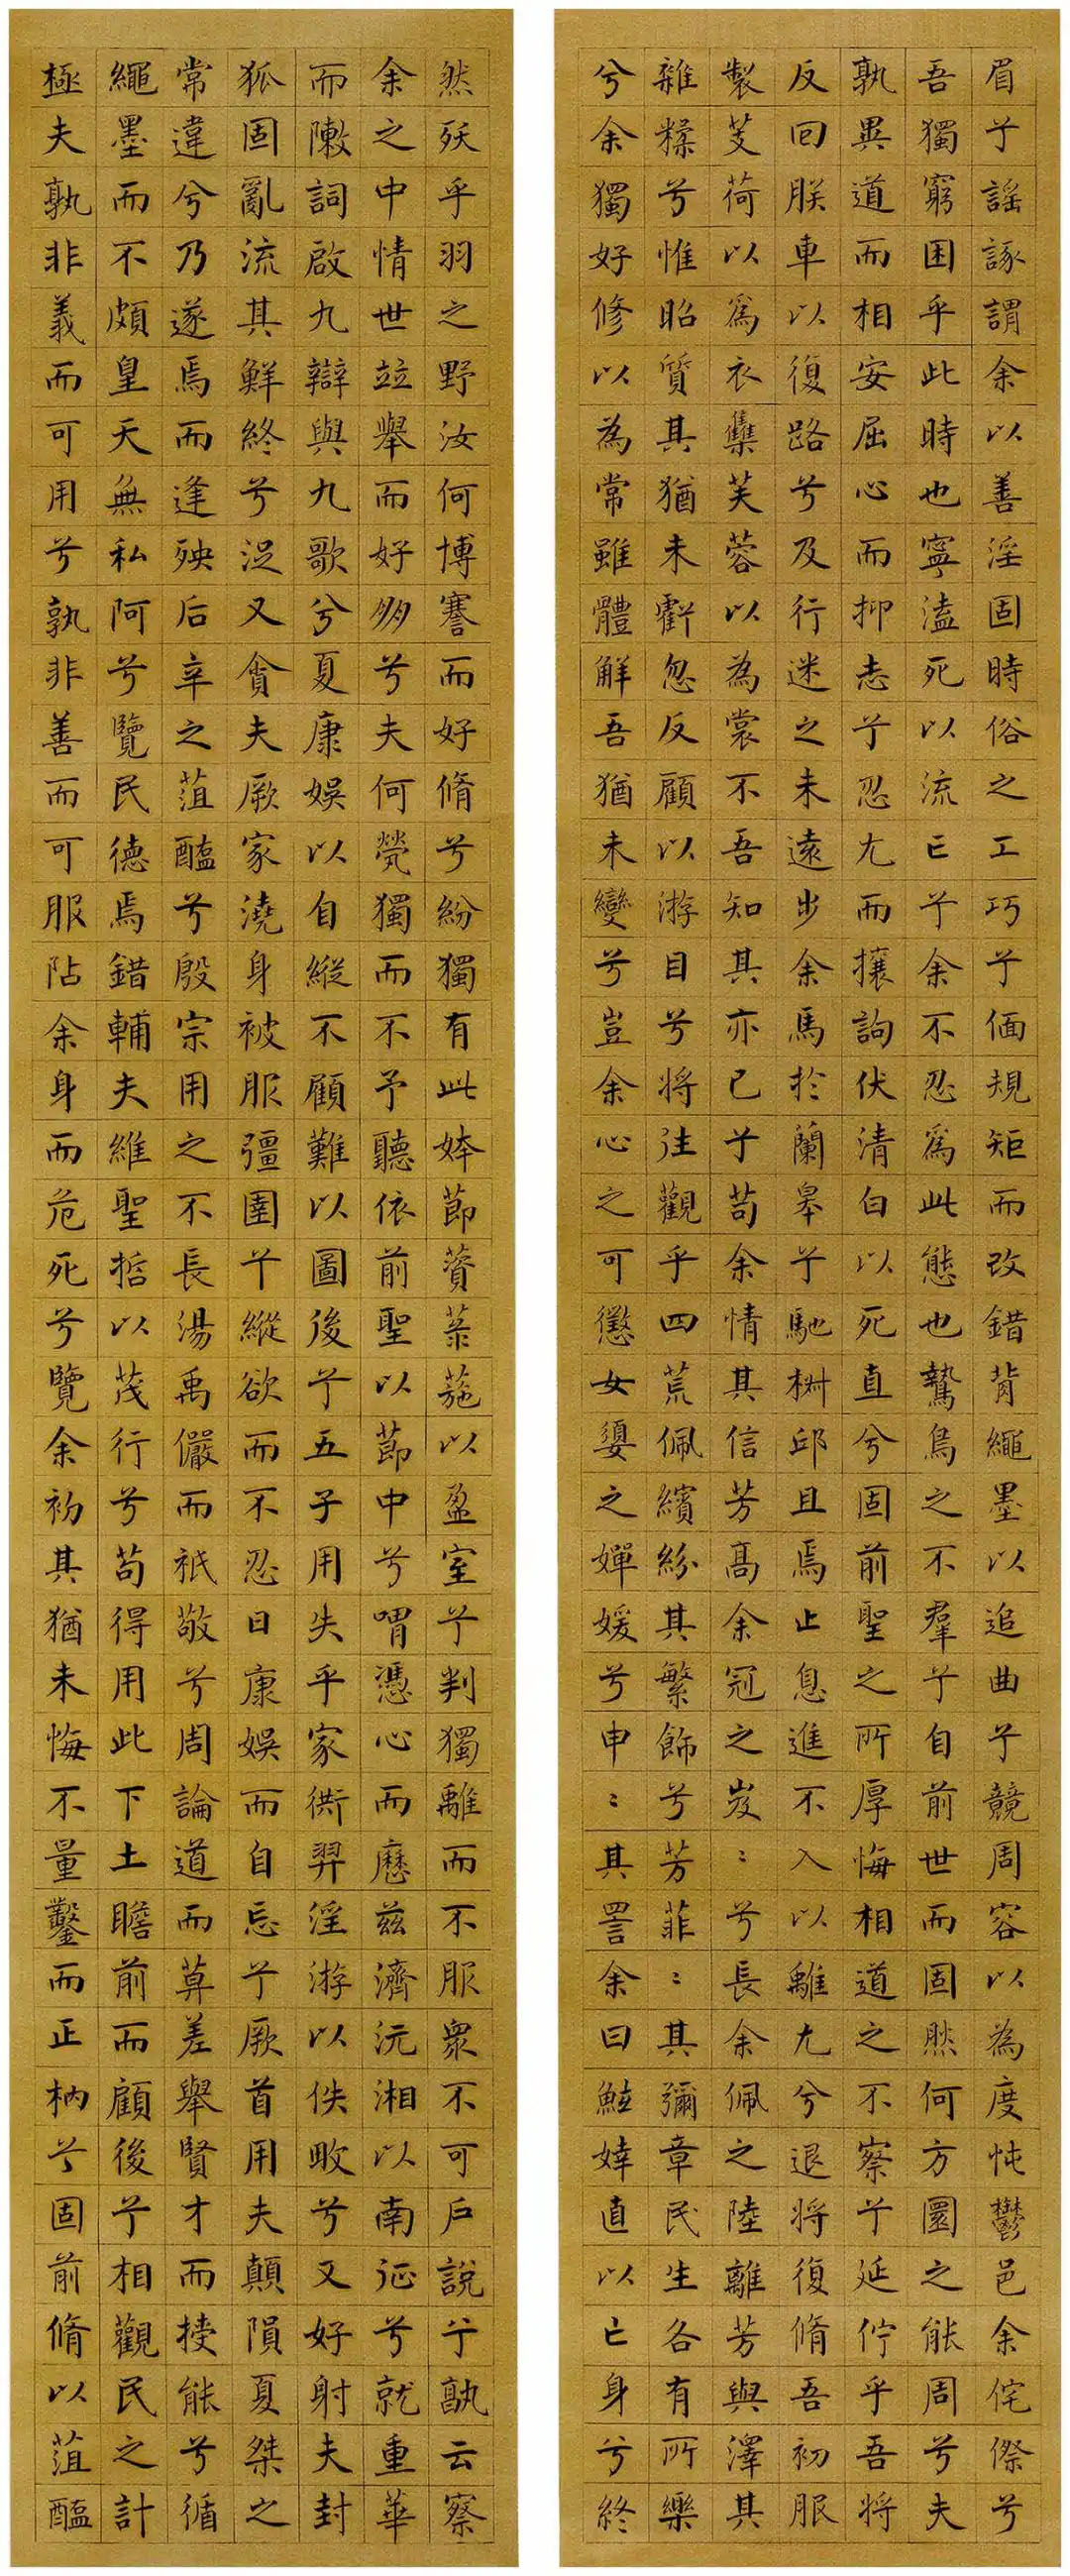 眉兮謠諑謂余以善淫固時俗之工巧兮偭規矩而改錯背繩墨以追曲兮競周容以為度忳鬱邑余侘傺兮
吾獨窮困乎此時也寧溘死以流亡兮余不忍爲此態也鷙鳥之不羣兮自前世而固然何方圜之能周兮夫
孰異道而相安屈心而抑志兮忍尤而攘訽伏清白以死直兮固前聖之所厚悔相道之不察兮延佇乎吾將
反回朕車以復路兮及行迷之未遠步余馬於蘭皋兮馳椒邱且焉止息進不入以離尤兮退將復脩吾初服
製芰荷以爲衣集芙蓉以為裳不吾知其亦已兮苟余情其信芳高余冠之岌〻兮長余佩之陸離芳與澤其
雜糅兮惟昭質其猶未虧忽反顧以游目兮將往觀乎四荒佩繽紛其繁飾兮芳菲〻其彌章民生各有所樂
兮余獨好修以為常雖體解吾猶未變兮豈余心之可懲女嬃之嬋媛兮申〻其詈余曰鮌婞直以亡身兮終
然殀乎羽之野汝何博謇而好脩兮紛獨有此姱節薋菉葹以盈室兮判獨離而不服衆不可戶說兮孰云察
余之中情世並舉而好朋兮夫何煢獨而不予聽依前聖以節中兮喟憑心而歷茲濟沅湘以南征兮就重華
而敶詞啟九辯與九歌兮夏康娛以自縱不顧難以圖後兮五子用失乎家衖羿淫游以佚畋兮又好射夫封
狐固亂流其鮮終兮浞又貪夫厥家澆身被服彊圉兮縱欲而不忍日康娛而自忘兮厥首用夫顛隕夏桀之
常違兮乃遂焉而逢殃后辛之菹醢兮殷宗用之不長湯禹儼而祗敬兮周論道而莫差舉賢才而授能兮循
繩墨而不頗皇天無私阿兮覽民德焉錯輔夫維聖哲以茂行兮苟得用此下土瞻前而顧後兮相觀民之計
極夫孰非義而可用兮孰非善而可服阽余身而危死兮覽余初其猶未悔不量鑿而正枘兮固前脩以菹醢